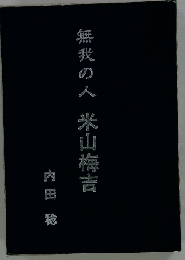 無我の人 米山梅吉
内田 稔